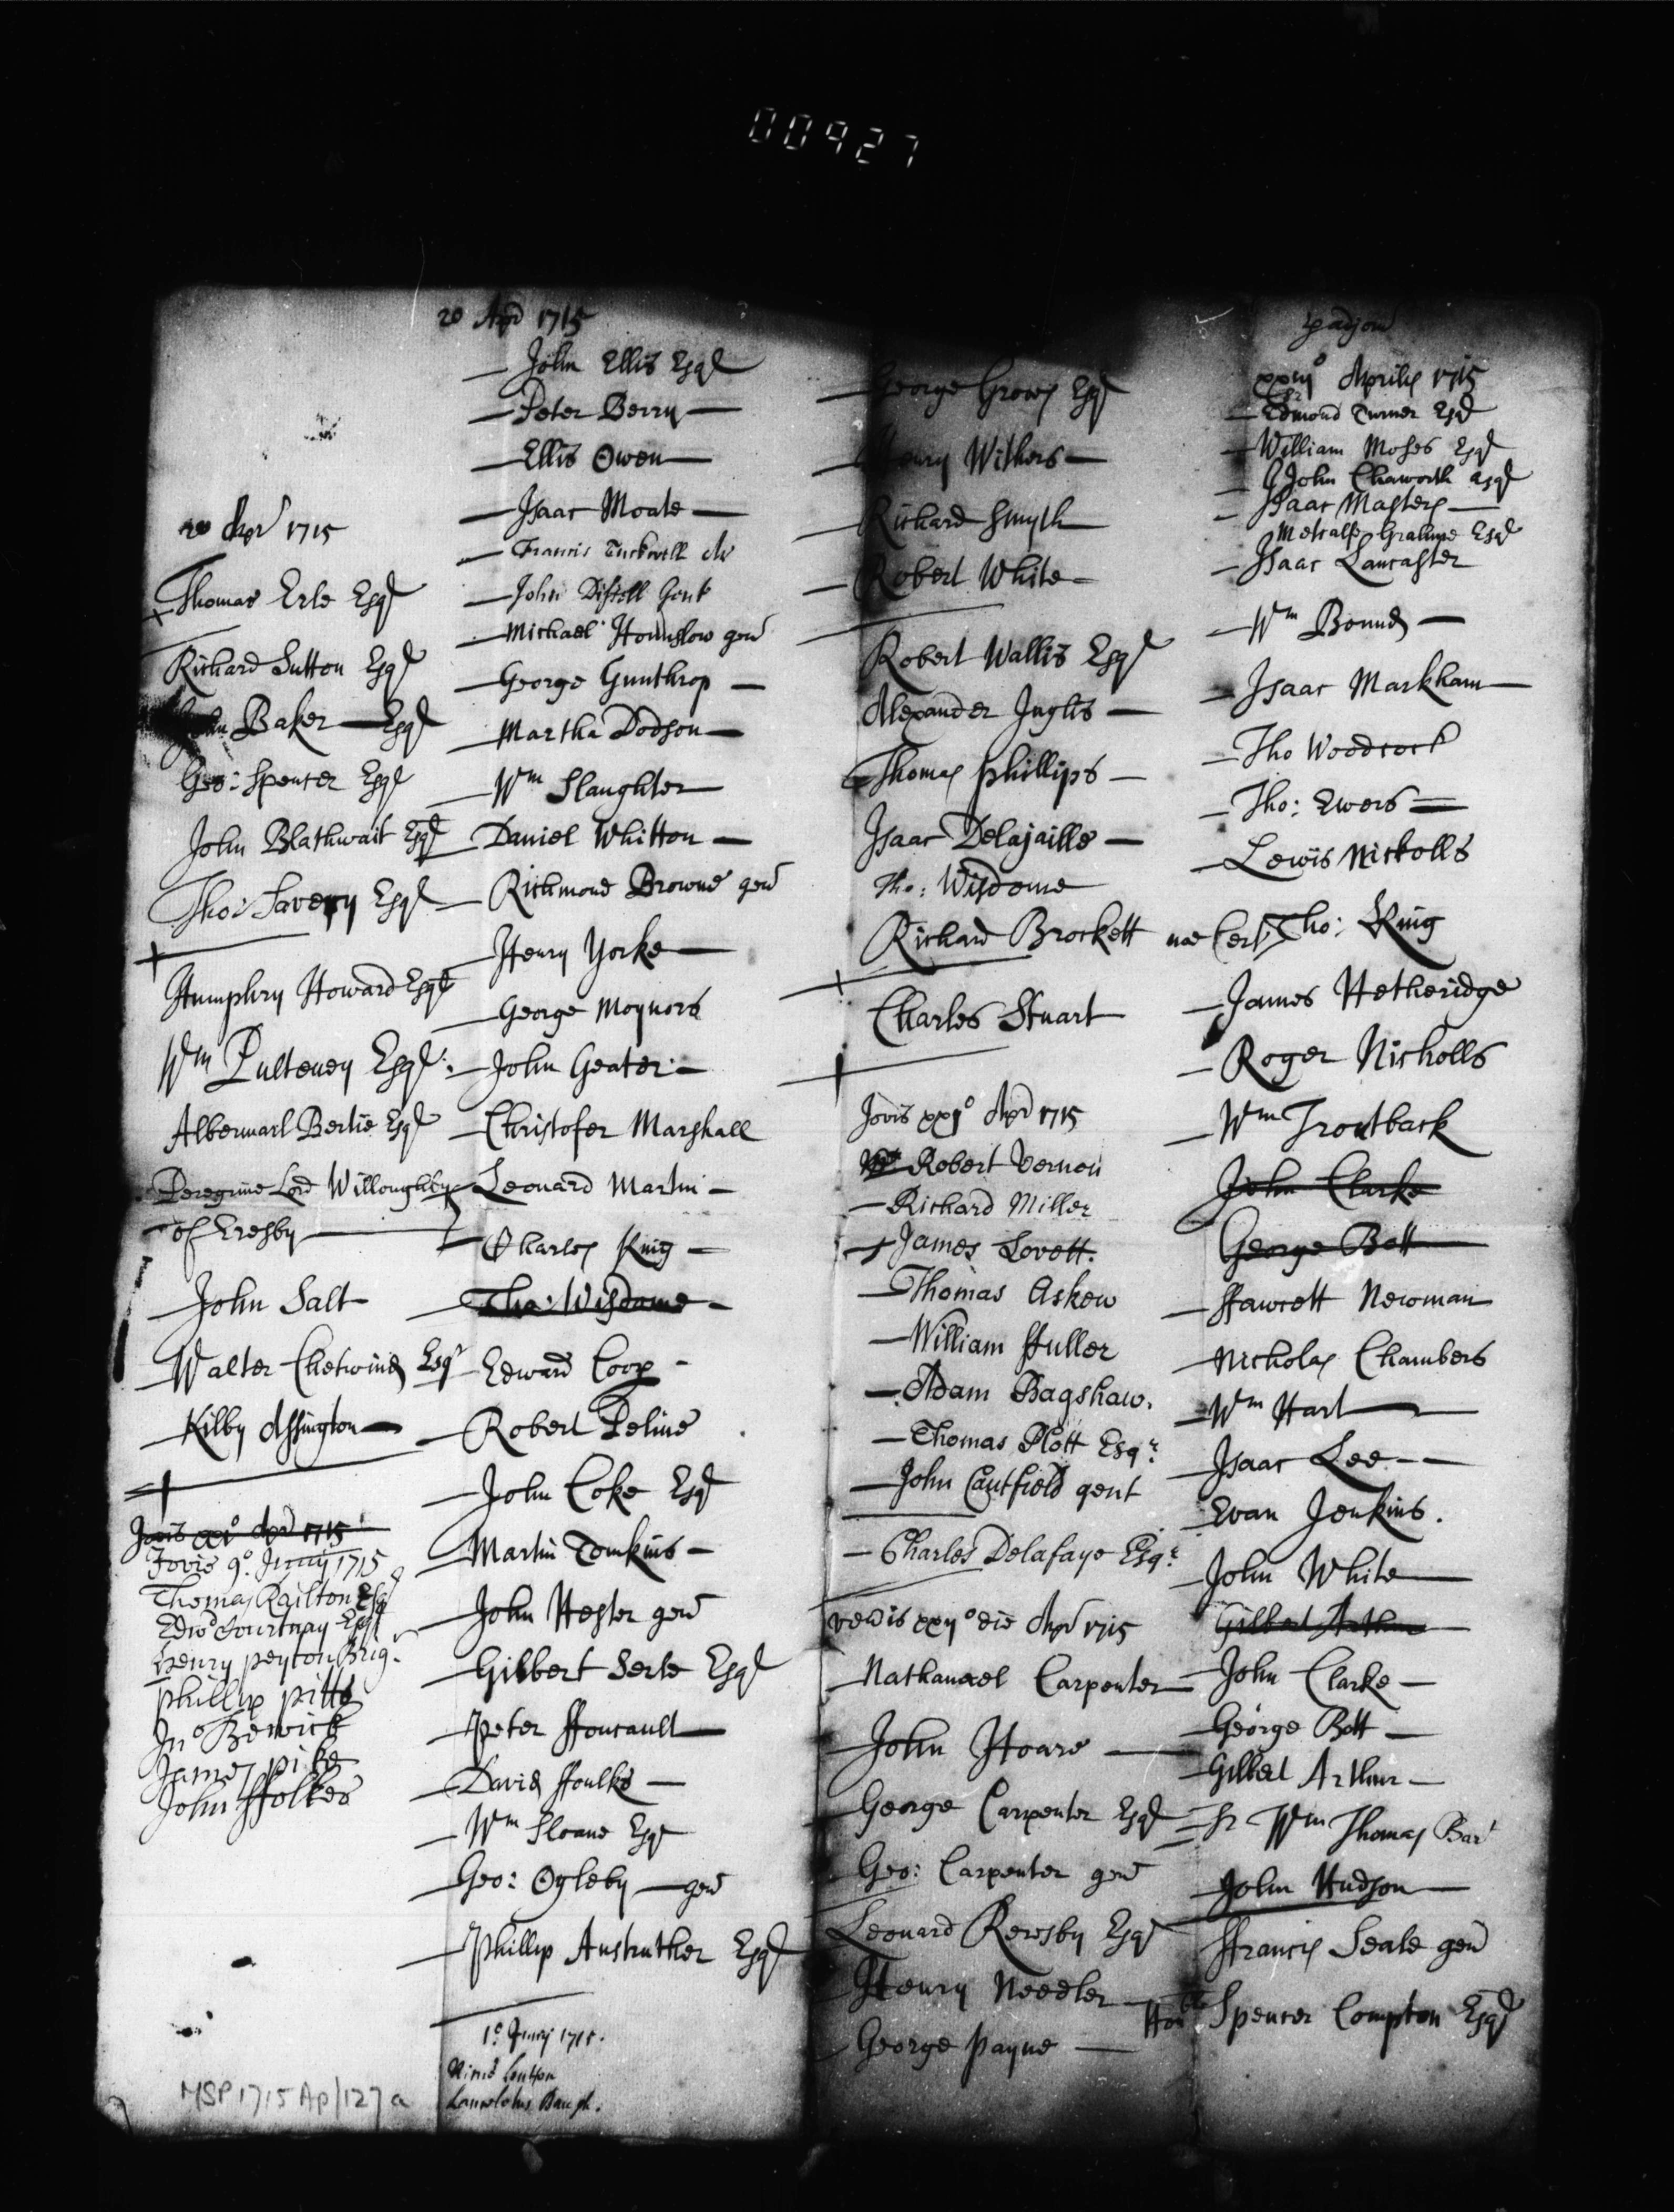 00927
20 Apr 1715
Thomas Erle Esqr
Richard Sutton Esqr
John Baker Esqr
Geo: Spencer Esqr
John Blathwait Esqr
Tho: Savery Esqr
Humphry Howard Esqr
Wm Pulteney Esqr.
Albermarl Bertie Esqr
Peregrine Lord Willoughby
of Eresby
John Salt
Walter Chetwind Esqr
Kilby Assington
Jovis Apr 1715
Jovis 9o. Junij 1715
Thomas Railton Esqr
Edwd Courtnay Esqr
Henry Peyton Brig.
Phillip Pitts
Jno Bewick
James Pike
John Ffolkes
MSP 1715 Ap/127a
20 Apr 1715
John Ellis Esqr
Peter Berry
Ellis Owen
Isaac Moale
Francis Tuckwell
John Distell Gent
Michael Hounslow gen
George Gunthrop
Martha Dodson
Wm Slaughter
Daniel Whitton
Richmond Browne gen
Henry Yorke
George Moynors
John Geater
Christofer Marshall
Leonard Martin
Charles King
Tho: Wisdome
Edward Coop
Robert Peline
John Coke Esqr
Martin Tomkins
John Hester gen
Gilbert Serle Esqr
Peter Ffoucault
David Ffoulks
Wm Sloane Esqr
Geo: Ogleby gen
Phillip Anstruther Esqr
1o Junij 1715.
George Grows Esqr
Henry Withers
Richard Smyth
Robert White
Robert Wallis Esqr
Alexander Inglis
Thomas Phillips
Isaac Delajaille
Tho: Wisdome
Richard Brockett
Charles Stuart
Jovis xxjo Apr 1715
Robert Vernon
Richard Miller
James Lovett.
Thomas Askew
William Ffuller
Adam Bagshaw.
Thomas Plott Esqr
John Cautfield gent
Charles Delafaye Esqr
xxijo die Apr 1715
Nathanael Carpenter
John Hoare
George Carpenter Esqr
Geo: Carpenter gen
Leonard Rewsby Esqr
Henry Needler
George Payne
p adjorn
xxiijo Aprilis 1715
Edmond Turner Esqr
William Moses Esqr
John Chaworth Esqr
Isaac Masters
Metcalfe Grahme Esqr
Isaac Lancaster
Wm Bounds
Isaac Markham
Tho Woodcock
Tho: Ewers
Lewis Nickolls
Tho: King
James Hetheridge
Roger Nicholls
Wm Troutback
John Clarke
George Bott
Ffawcett Newman
Nicholas Chambers
Wm Hart
Isaac Lee
Evan Jenkins.
John White
Gilbert Arthur
John Clarke
George Bott
Gilbert Arthur
Sr Wm Thomas Bart
John Hudson
Ffrancis Seale gen
Honble Spencer Compton Esqr